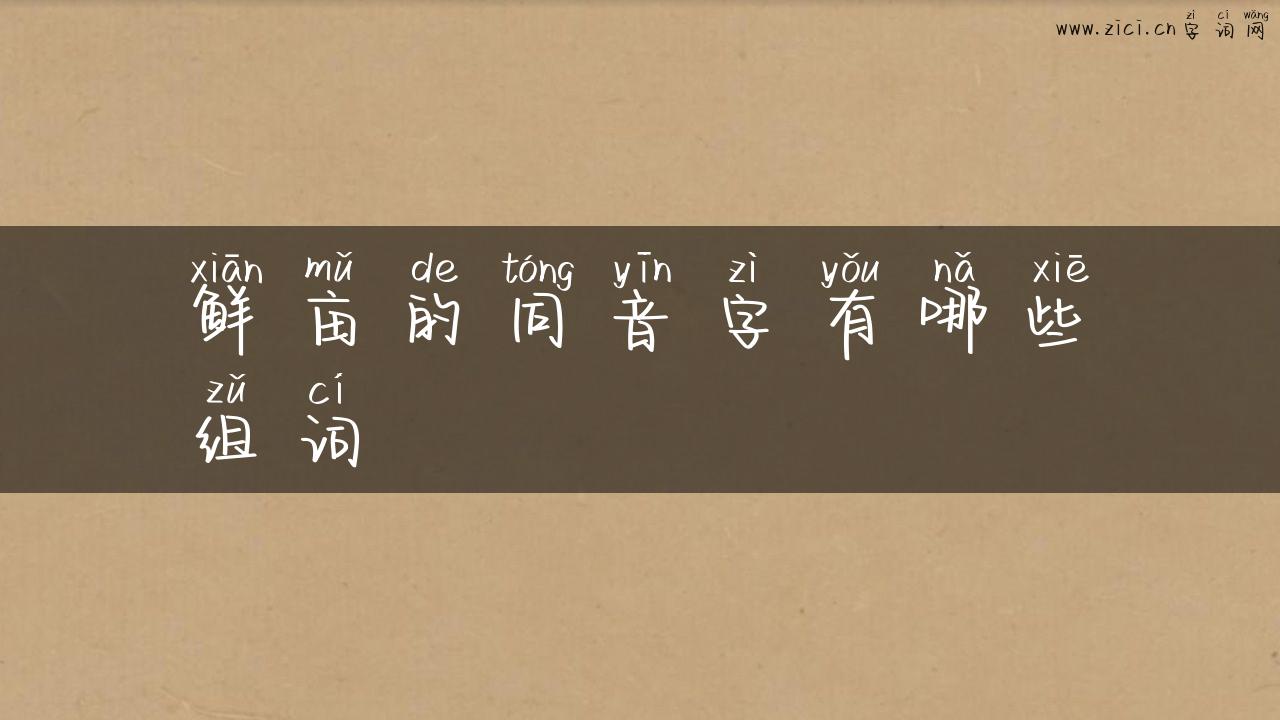 zì cí wǎng
www.zici.cn 字词网
xiān mǔ de tóng yīn zì yǒu nǎ xiē
鲜亩的同音字有哪些
zǔ cí
组词